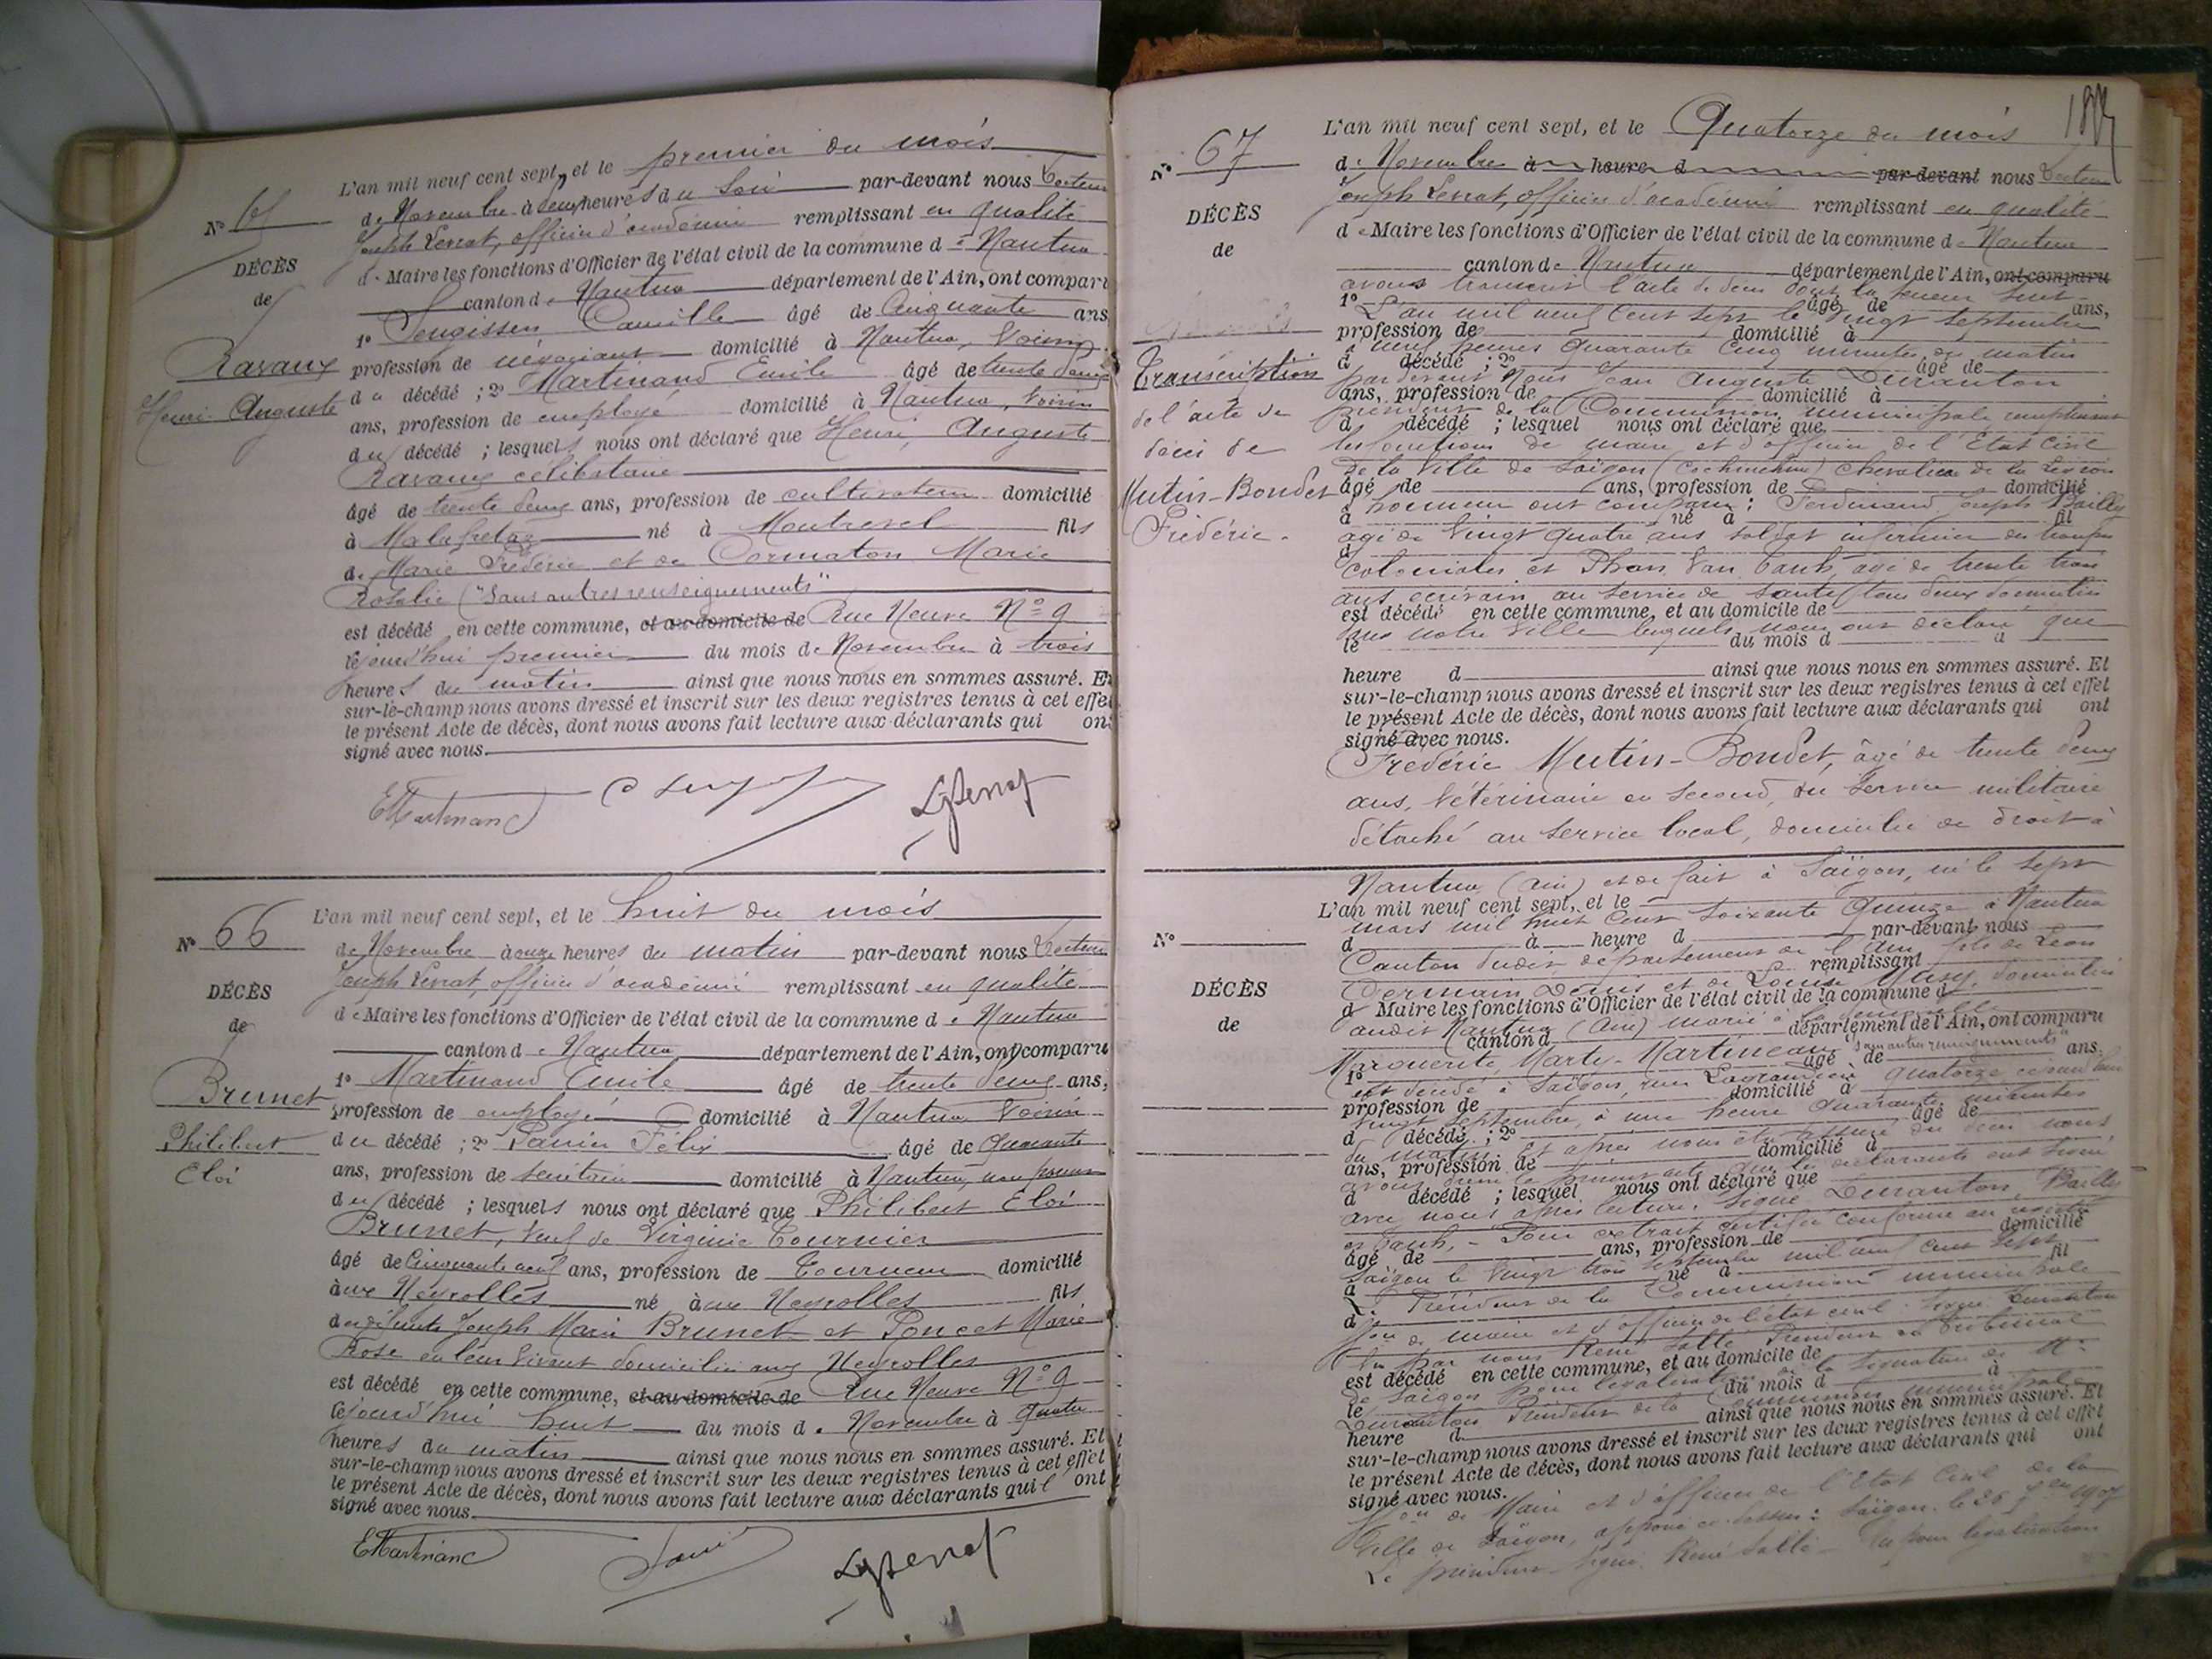 L'an mil neuf cent sept, et le premier du mois
de Novembre à deux heures du soir par-devant nous Docteur
Joseph Levrat, officier d'académie remplissant en qualité
de Maire les fonctions d'Officier de l'état civil de la commune de Nantua
canton de Nantua département de l'Ain, ont compar
1º Camille âgé de Cinquante ans
profession de négociant domicilié à Nantua, Voisin
du décédé ; 2º Martinand Emile âgé de trente deux
ans, profession de employé domicilié à Nantua, Voisin
du décédé ; lesquels nous ont déclaré que Henri, Auguste
Ravaux célibataire
âgé de trente deux ans, profession de cultivateur domicilié
à Malafretaz né à Montrevel fils
de Marie Frédéric et de Cormaton Marie
Rosalie ("Sans autres renseignements"
est décédé en cette commune, et au domicile de Rue Neuve Nº 9
lejourd'hui premier du mois de Novembre à trois
heures du matin ainsi que nous nous en sommes assuré. Et
sur-le-champ nous avons dressé et inscrit sur les deux registres tenus à cet effet
le présent Acte de décès, dont nous avons fait lecture aux déclarants qui ont
signé avec nous.
Nº 65
DÉCÈS
de
Ravaux
Henri Auguste
EMartinand
Nº 66
DÉCÈS
de
Brunet
Philibert
Eloi
L'an mil neuf cent sept, et le huit du mois
de Novembre à onze heures du matin par-devant nous Docteur
Joseph Levrat, officier d'académie remplissant en qualité
de Maire les fonctions d'Officier de l'état civil de la commune de Nantua
canton de Nantua département de l'Ain, ont comparu
1º Martinand Emile âgé de trente deux ans,
profession de employé domicilié à Nantua Voisin
du décédé ; 2º Félix âgé de quarante
ans, profession de secrétaire domicilié à Nantua, non parent
du décédé ; lesquels nous ont déclaré que Philibert Eloi
Brunet, veuf de Virginie Tournier
âgé de Cinquante neuf ans, profession de Tourneur domicilié
aux Neyrolles né aux Neyrolles fils
des défunts Joseph Marie Brunet et Poncet Marie
Rose en leur vivant domiciliés aux Neyrolles
est décédé en cette commune, et au domicile de Rue Neuve Nº 9
lejourd'hui huit du mois de Novembre à quatre
heures du matin ainsi que nous nous en sommes assuré. Et
sur-le-champ nous avons dressé et inscrit sur les deux registres tenus à cet effet
le présent Acte de décès, dont nous avons fait lecture aux déclarants qui ont
signé avec nous.
EMartinand
Nº 67
DÉCÈS
de
Transcription
de l'acte de
décès de
Mutin-Boudet
Frédéric.
L'an mil neuf cent sept, et le Quatorze du mois
de Novembre à heure d par-devant nous Docteur
Joseph Levrat, officier d'académie remplissant en qualité
de Maire les fonctions d'Officier de l'état civil de la commune de Nantua
canton de Nantua département de l'Ain, ont comparu
avons transcrit l'acte de décès dont la teneur suit
1º âgé de ans,
L'an mil neuf cent sept le vingt septembre
profession de domicilié à
à neuf heures quarante cinq minutes du matin
d décédé ; 2º âgé de
par devant Nous Jean Auguste Duranton
ans, profession de domicilié à
président de la Commission municipale remplissant
d décédé ; lesquel nous ont déclaré que
les fonctions de maire et d'officier de l'Etat Civil
de la Ville de Saïgon (Cochinchine) Chevalier de la Légion
âgé de ans, profession de domicilié
d'honneur ont comparu : Ferdinand Joseph Bailly
à né à fil
âgé de Vingt quatre ans soldat infirmier des troupes
d
coloniales et Phan Van âgé de trente trois
ans écrivain au service de santé tous deux domiciliés
est décédé en cette commune, et au domicile de
en notre Ville lesquels nous ont déclaré que
le du mois d à
heure d ainsi que nous nous en sommes assuré. Et
sur-le-champ nous avons dressé et inscrit sur les deux registres tenus à cet effet
le présent Acte de décès, dont nous avons fait lecture aux déclarants qui ont
signé avec nous.
Frédéric Mutin-Boudet, âgé de trente deux
ans, Vétérinaire en second, du service militaire
détaché au service local, domicilié de droit à
Nantua (Ain) et de fait à Saïgon, né le sept
L'an mil neuf cent sept, et le
mars mil huit cent soixante quinze à Nantua
Nº
d à heure d par-devant nous
Canton dudit département de l'Ain fils de Léon
remplissant
Germain Denis et de Louise domiciliés
DÉCÈS
de
d Maire les fonctions d'Officier de l'état civil de la commune d
audit Nantua (Ain) marié à
canton d département de l'Ain, ont comparu
Marguerite, Marty-Martineau "sans autres renseignements"
1º âgé de ans.
est décédé à Saïgon, rue quatorze
profession de domicilié à
vingt septembre, à une heure quarante minutes
d décédé ; 2º âgé de
du matin. Et après nous être assuré du décès nous
ans, profession de domicilié à
avons dressé le présent acte que les déclarants ont signé
d décédé ; lesquel nous ont déclaré que
avec nous après lecture. Signé Duranton, Bailly
Pour extrait certifié conforme au registre
âgé de ans, profession de domicilié
Saïgon le vingt trois septembre mil neuf cent sept
à né à fil
Le Président de la Commission municipale
d
de maire et d'officier de l'état civil. Signé Duranton
Vu par nous René Sallé Président du Tribunal
est décédé en cette commune, et au domicile de
de Saïgon pour légalisation de la signature de Mr
le du mois d à
Duranton Président de la Commission municipale
heure d ainsi que nous nous en sommes assuré. Et
sur-le-champ nous avons dressé et inscrit sur les deux registres tenus à cet effet
le présent Acte de décès, dont nous avons fait lecture aux déclarants qui ont
signé avec nous.
de Maire et d'officier de l'Etat Civil de la
Ville de Saïgon, apposée ci-dessus : Saïgon, le 26 1907
Le président signé René Sallé Vu pour légalisation